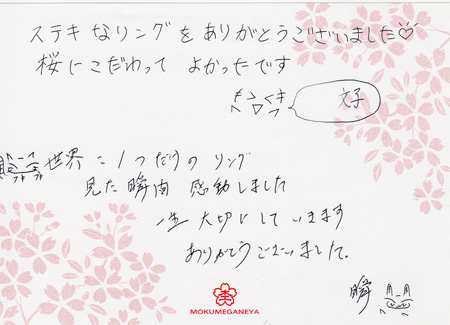 ステキなリングをありがとうございました♡
桜にこだわって よかったです
世界に1つだけのリング
見た瞬間 感動しました
一生 大切にしていきます
ありがとうございました。
瞬
MOKUMEGANEYA